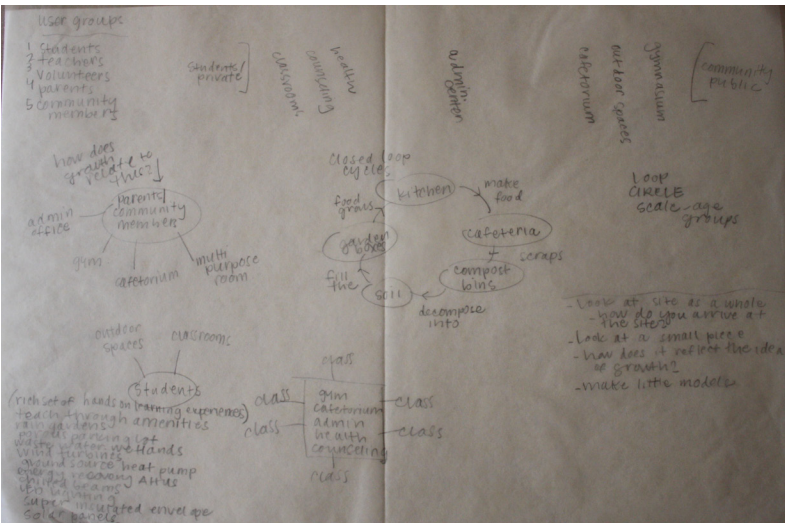 user groups
1 students
2 teachers
3 volunteers
4 parents
5 community
members
students/
private
classrooms
counseling
health
admin.
center
cafetorium
outdoor spaces
gymnasium
community
public
how does
growth
relate to
this?
parents/
community
members
admin
office
gym
cafetorium
multi
purpose
room
closed loop
cycles
kitchen
make
food
cafeteria
scraps
compost
bins
decompose
into
soil
fill
the
garden
boxes
food
grows
LOOP
CIRCLE
scale-age
groups
-Look at site as a whole
-how do you arrive at
the site?
-Look at a small piece
-how does it reflect the idea
of growth?
-make little models
outdoor
spaces
classrooms
students
(rich set of hands on learning experiences)
teach through amenities
rain gardens
porous parking lot
waste water wetlands
wind turbines
ground source heat pump
energy recovery AHUs
chilled beams
LED lighting
super insulated envelope
solar panels
class
class
class
gym
cafetorium
admin
health
counseling
class
class
class